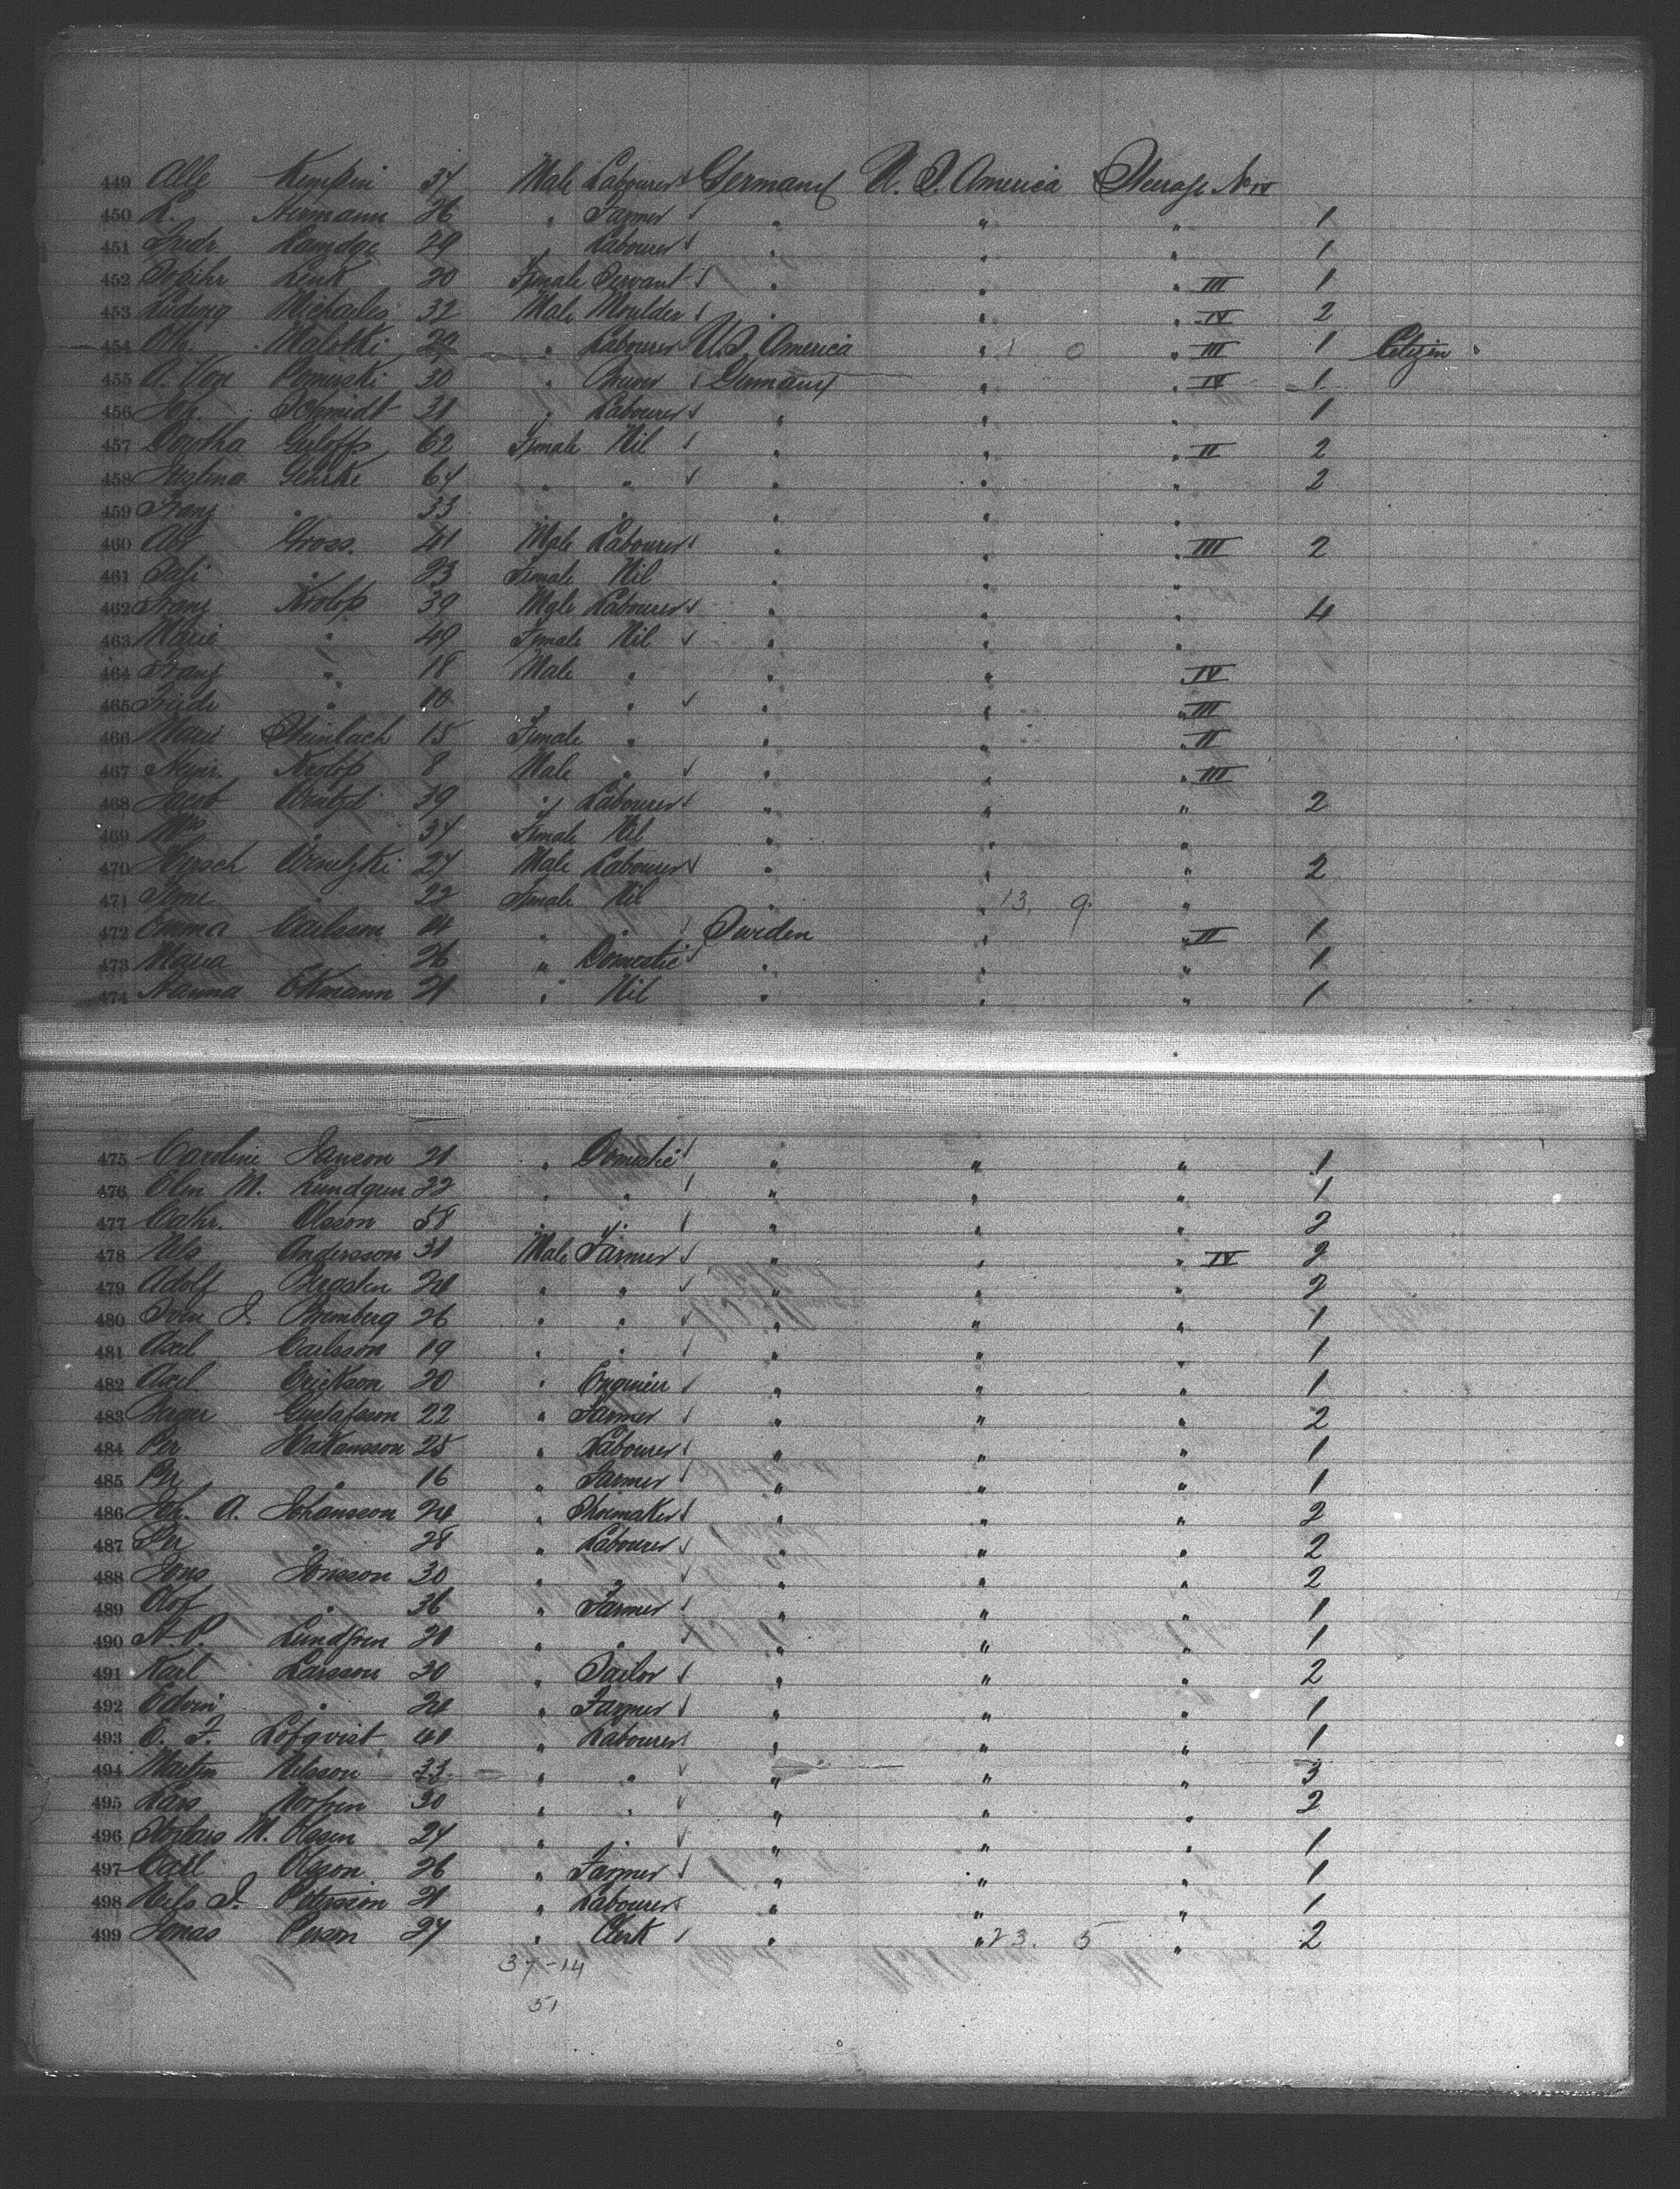 449 Alb Kempin 34 Male Labourer Germany U. S. America Steerage No IV
450 L. Hermann 26 " Farmer " " " 1
451 Fredr. Lamdge 29 " Labourer " " " 1
452 Sophie Link 20 Female Servant " " " III 1
453 Ludwig Michaelis 32 Male Moulder " " " IV 2
454 Oth. Malotki 29 " Labourer U.S. America " 1 0 " III 1 Citizen
455 A. Von Pomerski 30 " Brewer Germany " " IV 1
456 Joh. Schmidt 31 " Labourer " " " 1
457 Dorotha Guloff 62 Female Nil " " " II 2
458 Justina Gehrke 64 " " " " " 2
459 Franz " 33 " " " " "
460 Abr Gross. 41 Male Labourer " " " III 2
461 Sali " 23 Female Nil " " "
462 Franz Krolop 39 Male Labourer " " " 4
463 Marie " 49 Female Nil " " "
464 Franz " 18 Male " " " " IV
465 Friede " 10 " " " " " III
466 Marie Steinlach 15 Female " " " " II
467 Heinr. Krolop 8 Male " " " " III
468 Jacob Wentzel 39 " Labourer " " " 2
469 Mrs " 34 Female Nil " " "
470 Hersch 27 Male Labourer " " " 2
471 22 Female Nil " " 13. 9. "
472 Emma Carlsson 14 " " Sweden " " II 1
473 Maria " 26 " Domestic " " " 1
474 Hanna Ekmann 21 " Nil " " " 1
475 Caroline Janson 21 " Domestic " " " 1
476 Elin M. Lundgren 22 " " " " " 1
477 Cathr. Olsson 58 " " " " " 2
478 Nels Andersson 31 Male Farmer " " " IV 2
479 Adolf Bergsten 24 " " " " " 2
480 Sven J. Bremberg 26 " " " " " 1
481 Axel Carlsson 19 " " " " " 1
482 Axel Erickson 20 " Engineer " " " 1
483 Birger Gustafsson 22 " Farmer " " " 2
484 Per Hakansson 25 " Labourer " " " 1
485 Per " 16 " Farmer " " " 1
486 Joh. A. Johansson 24 " Shoemaker " " " 2
487 Per " 28 " Labourer " " " 2
488 Jons Jonsson 30 " " " " " 2
489 Olof " 36 " Farmer " " " 1
490 A. P. Lundgren 21 " " " " " 1
491 Karl Larsson 30 " Tailor " " " 2
492 Edvin " 24 " Farmer " " " 1
493 C. F. Lofqvist 40 " Labourer " " " 1
494 Martin Nilsson 33 " " " " " 3
495 Lars 30 " " " " " 2
496 M. Olssen 24 " " " " " 1
497 Carl Olsson 26 " Farmer " " " 1
498 Nels J. Petersson 21 " Labourer " " " 1
499 Jonas Person 27 " Clerk " " 23. 5 " 2
37-14
51